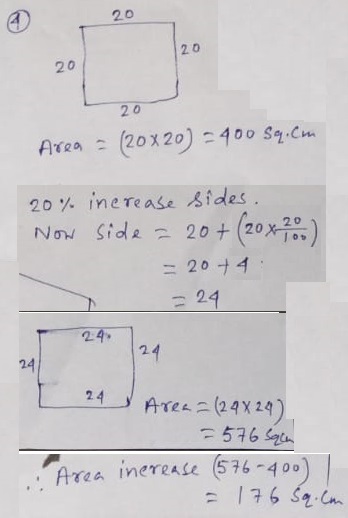 ④
20
20
20
20
Area = (20×20) = 400 Sq.Cm
20% increase sides.
Now side = 20 + (20×20/100)
= 20 + 4
= 24
24
24
24
24
Area = (24×24)
= 576 Sqcm
∴ Area increase (576-400)
= 176 Sq.Cm